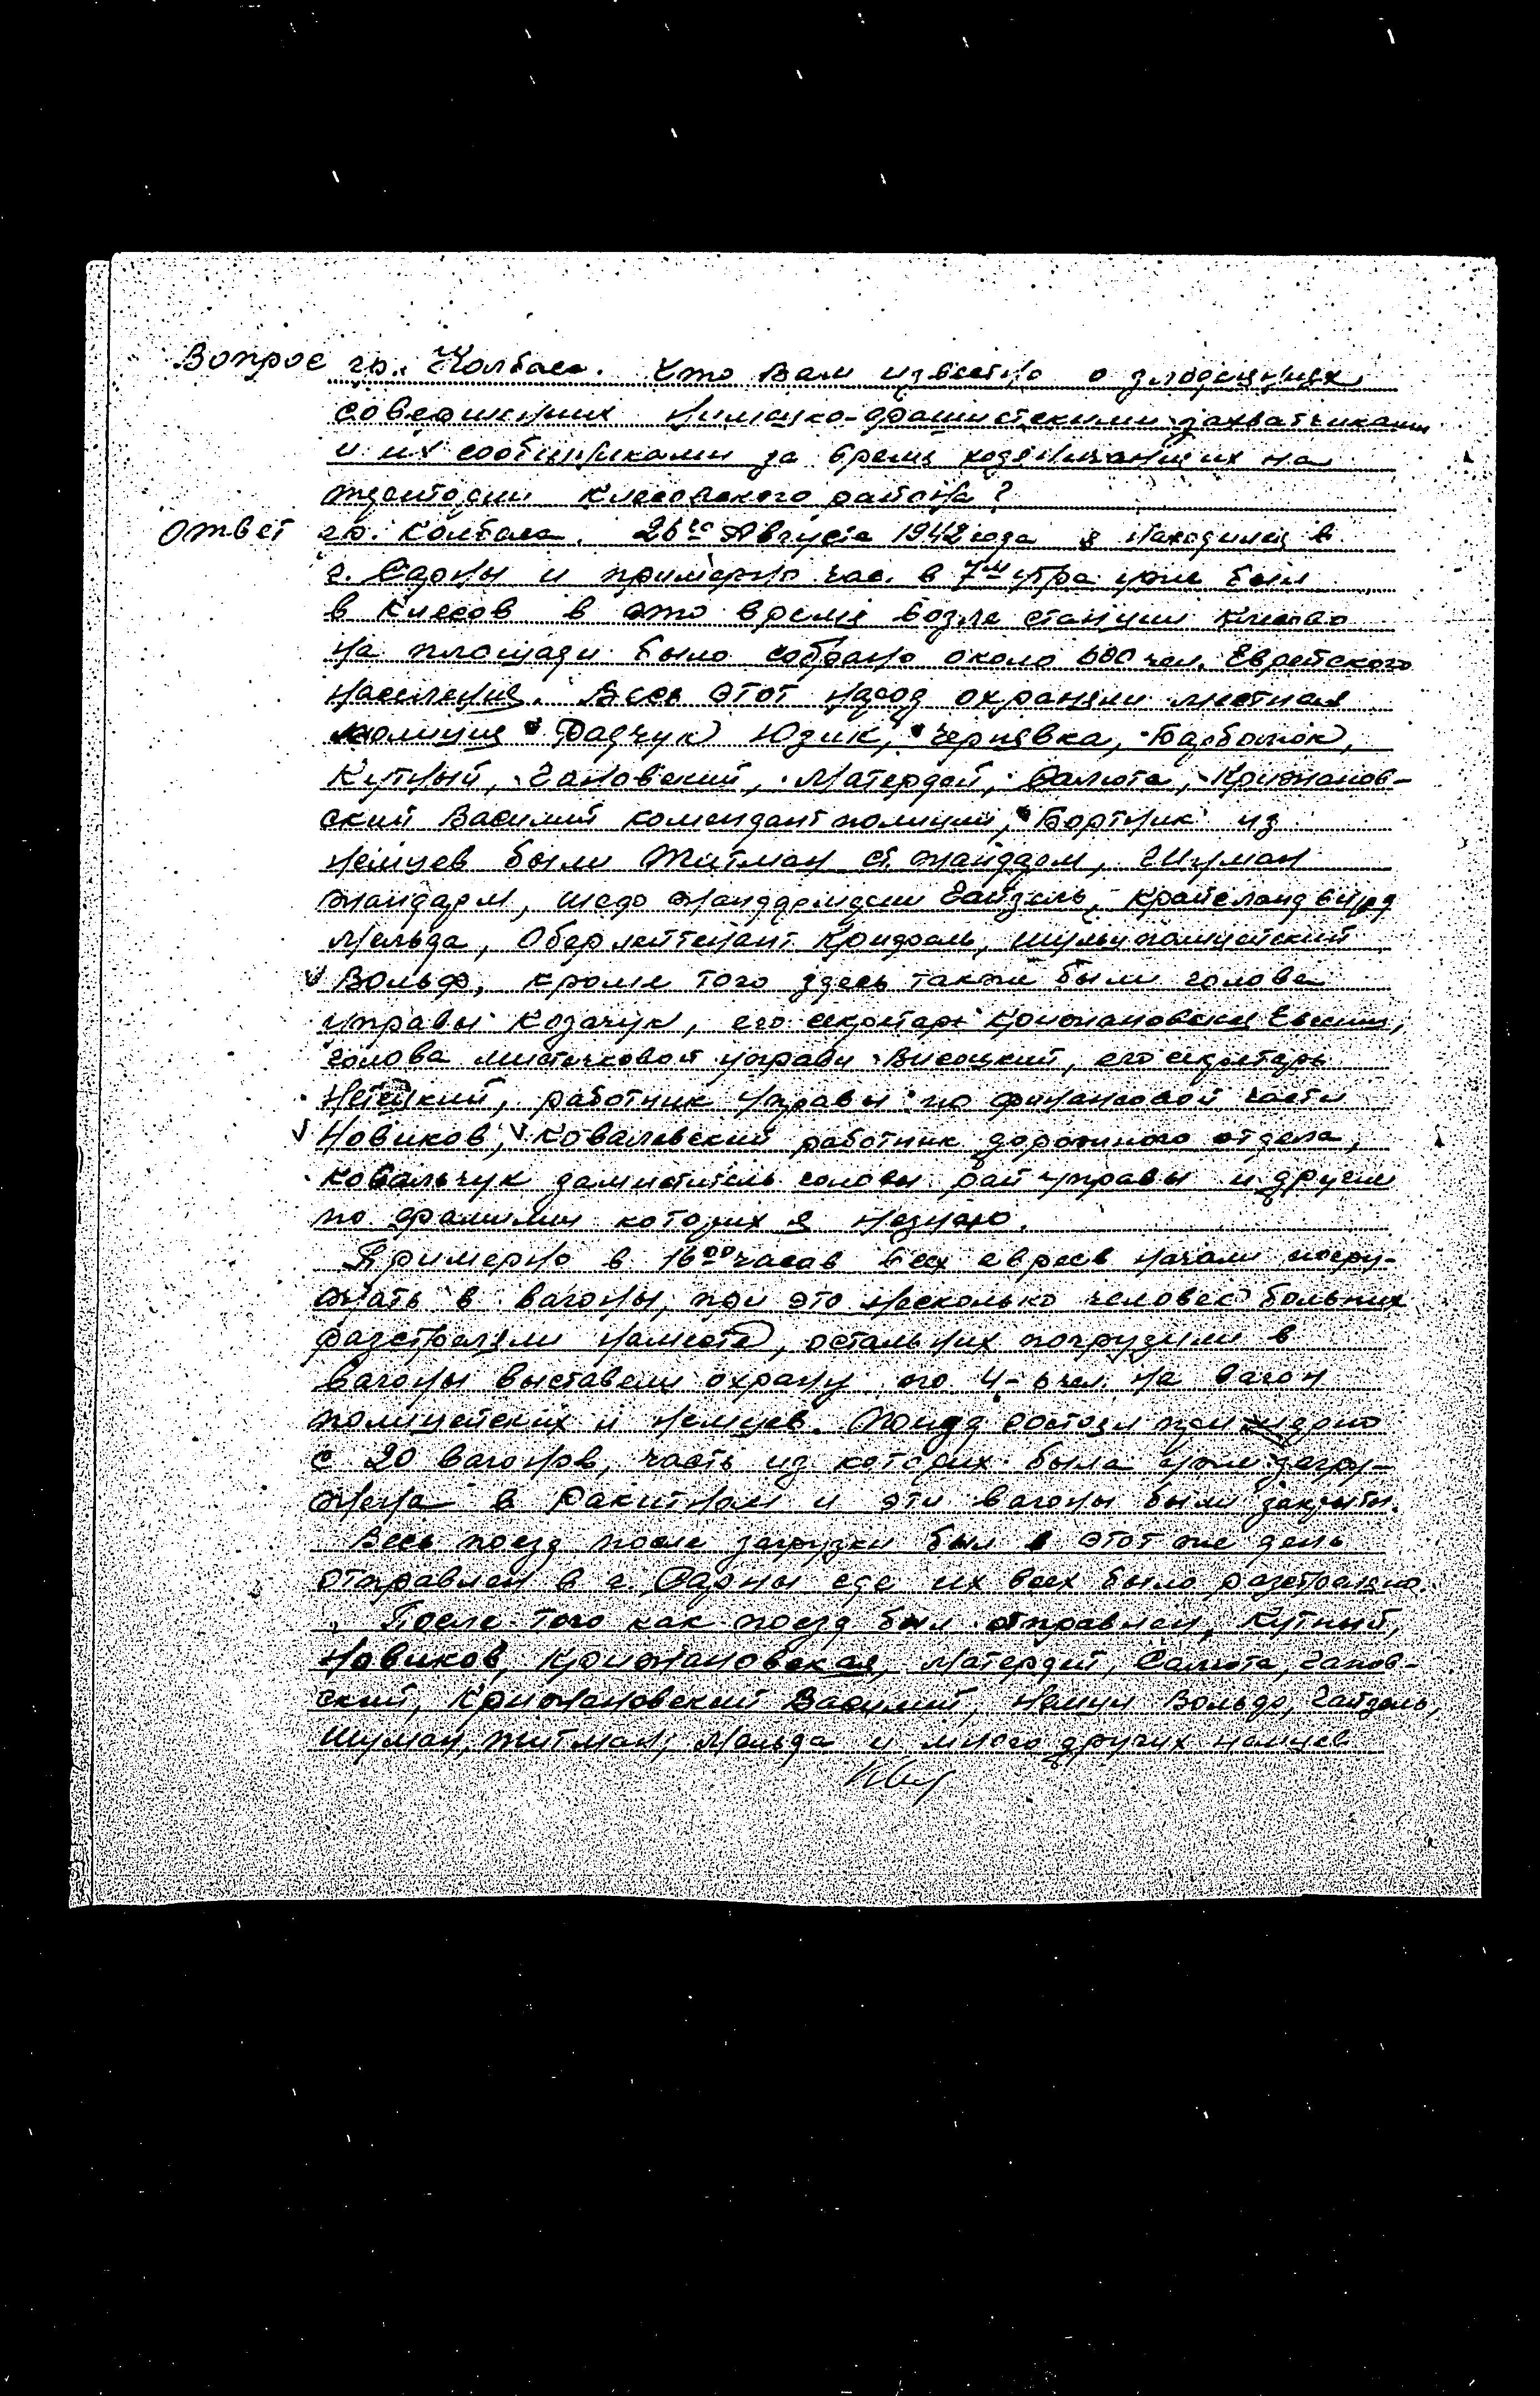 Вопрос гр. Колбаса. Что Вам известно о злодеяниях
совершенних немецко-фашистскими захватчиками
и их сообщниками за время хозяйничания их на
територии Клесовского района?
Ответ гр. Колбаса. 26го Августа 1942 года я находился в
г. Сарны и примерно час. в 7м утра уже был
в Клесов в это время возле станции Клесово
на площади было собрано около 600 чел. Еврейского
населения. Весь этот народ охраняли местная
полиция Радчук Юзик, Чернявка,
Кутный, Гановский, Матердей, Салюта, Крижанов-
ский Василий комендант полиции, Бортник из
немцев были Титман ст. жандарм, Шуман
жандарм, шеф жандармерии Гайзель, Крайсландвирд
Мельда, Оберлейтенант, шульцполицейский
Вольф, кроме того здесь также были голова
управы Козачук, его секретарь Крижановская Евгения,
голова мистечковой управи Висоцкий, его секретарь
работник управы по финансовой части
Новиков, Ковалевский работник дорожного отдела,
Ковальчук заместитель головы райуправы и другие
по фамилии которих я незнаю.
Примерно в 16оо часов всех евреев начали погру-
жать в вагоны, при это несколько человек больних
разстреляли наместе, остальних погрузили в
вагоны выставели охрану по 4-6 чел. на вагон
полицейских и немцев. Поезд состоял примерно
с 20 вагонов, часть из которих была уже загру-
жена в Ракитном и эти вагоны были закрыты.
Весь поезд после загрузки был в этот же день
отправлен в г. Сарны где их всех было разстреляно.
После того как поезд был отправлен, Кутный,
Новиков, Крижановская, Матердей, Салюта, Ганов-
ский, Крижановский Василий, немцы Вольф, Гайзель,
Шуман, Титман, Мельда и много других немцев